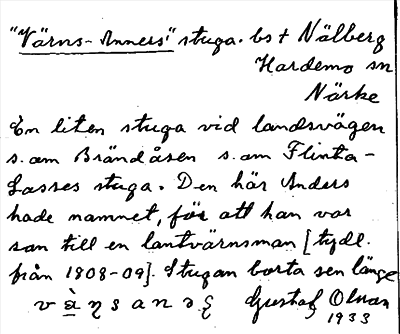 "Värns-Anners" stuga. bs + Nälberg
Hardemo sn
Närke
En liten stuga vid landsvägen
s.om Brändåsen s.om Flinta-
Lasses stuga. Den här Anders
hade namnet, för att han var
son till en lantvärnsman [tydl.
från 1808-09]. Stugan borta sen länge
Gustaf
1933